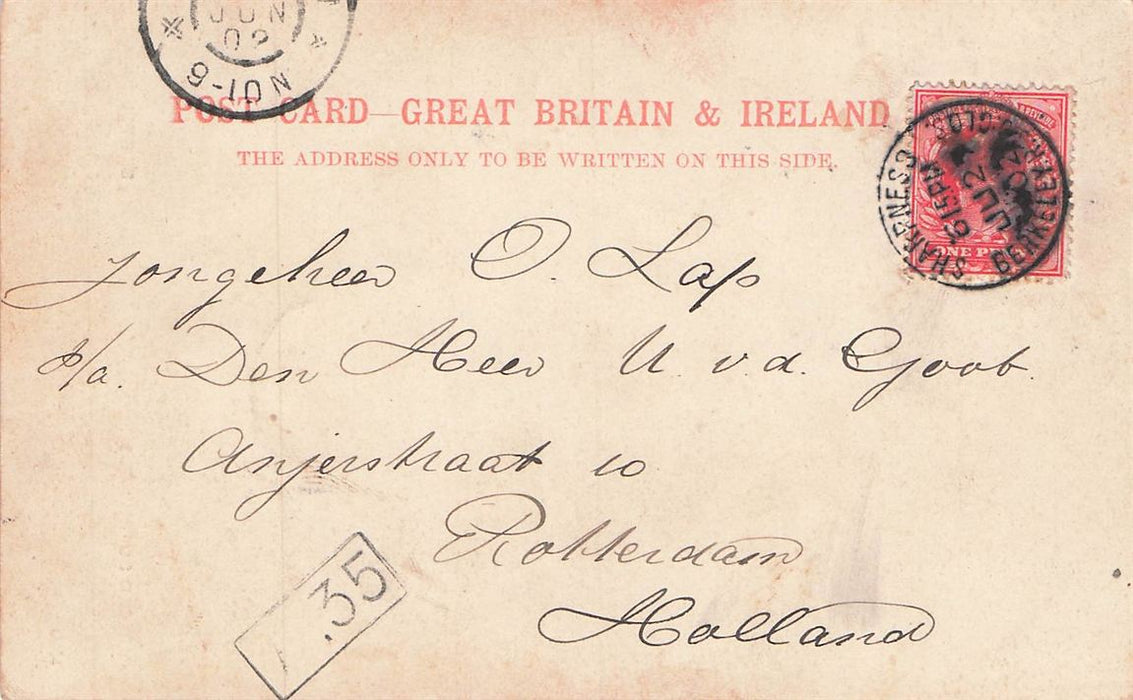 JUN
02
6-10N
POST CARD—GREAT BRITAIN & IRELAND
THE ADDRESS ONLY TO BE WRITTEN ON THIS SIDE.
SHARPNESS
BERKELEY
6 15 PM
JU 2
02
GLOS
ONE
Jongeheer O. Lap
p/a. Den Heer U. v.d. Goot.
Anjerstraat 10
Rotterdam
Holland
.35